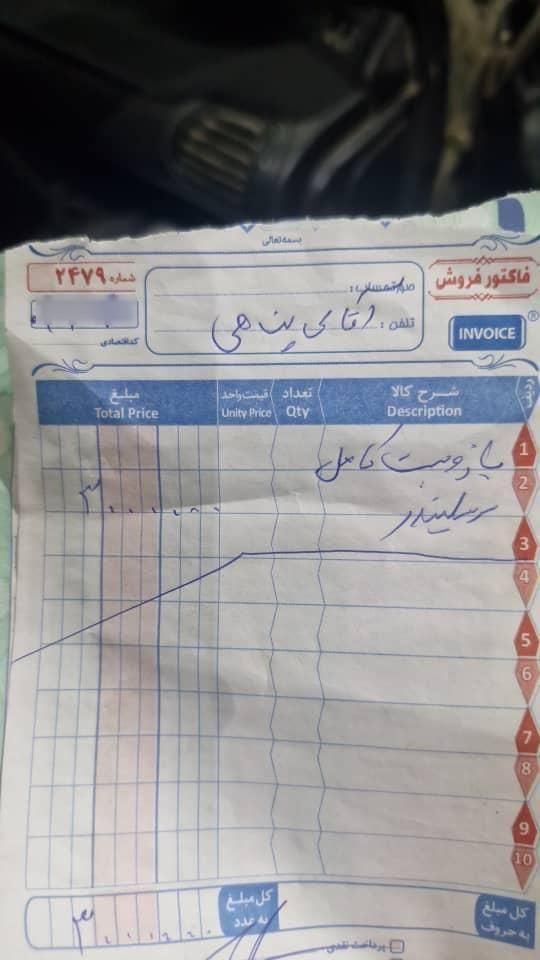 بسمه‌تعالی
فاکتور فروش
INVOICE
®
صورتحساب :
تلفن :
آقای پناهی
شماره ۲۴۷۹
کداقتصادی
ردیف
شرح کالا
Description
تعداد
Qty
قیمت واحد
Unity Price
مبلغ
Total Price
1
باز و بست کامل
2
سرسیلندر
۳۰۰۰۰۰۰۰
3
4
5
6
7
8
9
10
کل مبلغ به حروف
کل مبلغ به عدد
۳۰۰۰۰۰۰۰
پرداخت نقدی